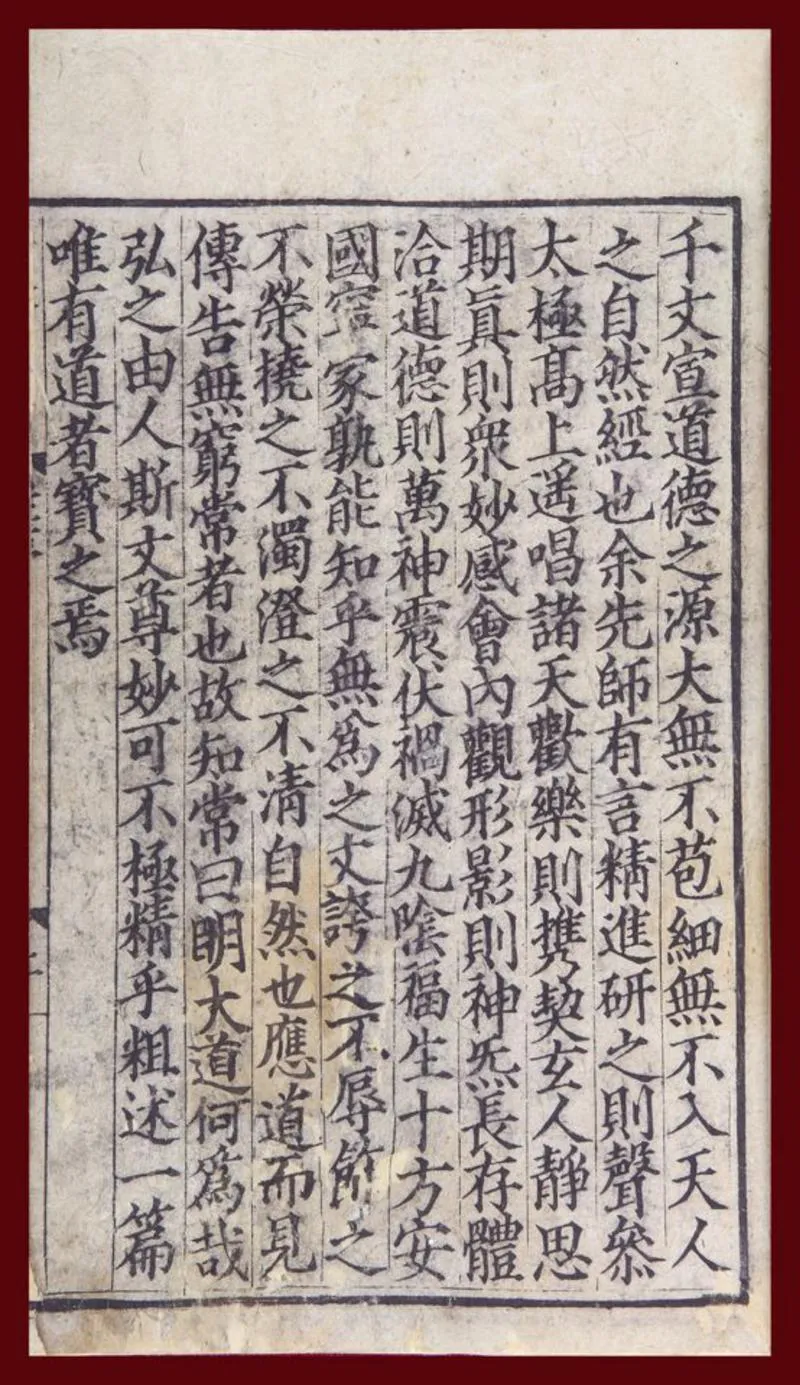 千文宣道德之源大無不苞細無不入天人
之自然經也余先師有言精進研之則聲叅
太極髙上遥唱諸天歡樂則携契玄人靜思
期眞則衆妙感會內觀形影則神炁長存體
洽道德則萬神震伏禍滅九隂福生十方安
國寧家孰能知乎無爲之文誇之不辱飾之
不榮撓之不濁澄之不清自然也應道而見
傳告無窮常者也故知常曰明大道何爲哉
弘之由人斯文尊妙可不極精乎粗述一篇
唯有道者寶之焉